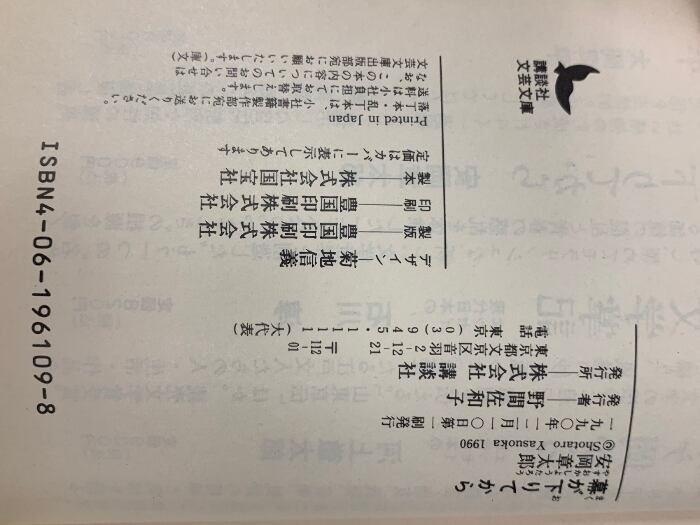 幕が下りてから
まく お
安岡章太郎
やすおかしょうたろう
©Shotaro Yasuoka 1990
一九九〇年一二月一〇日第一刷発行
発行者——野間佐和子
発行所——株式会社 講談社
東京都文京区音羽2-12-21 〒112-01
電話 東京(03)945・1111(大代表)
デザイン——菊地信義
製版——豊国印刷株式会社
印刷——豊国印刷株式会社
製本——株式会社国宝社
定価はカバーに表示してあります
Printed in Japan
落丁本・乱丁本は、小社書籍製作部宛にお送りください。
送料は小社負担にてお取替えします。
なお、この本の内容についてのお問い合せは
文芸文庫出版部宛にお願いいたします。(文庫)
講談社
文芸文庫
ISBN4-06-196109-8